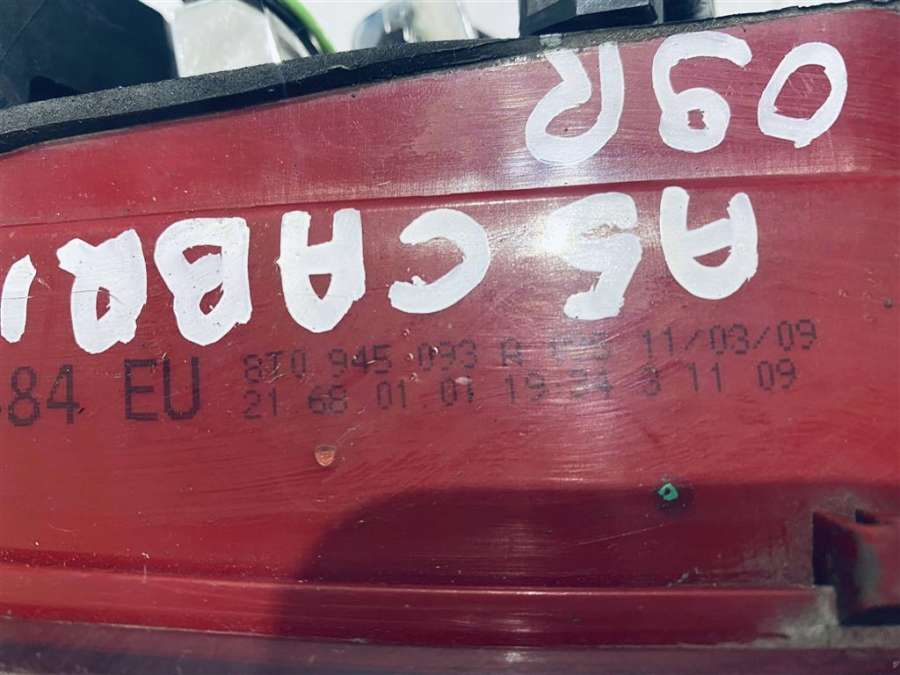 A5 CABRI
09R
84 EU
8T0 945 093 11/03/09
21 68 01 01 19 3 11 09